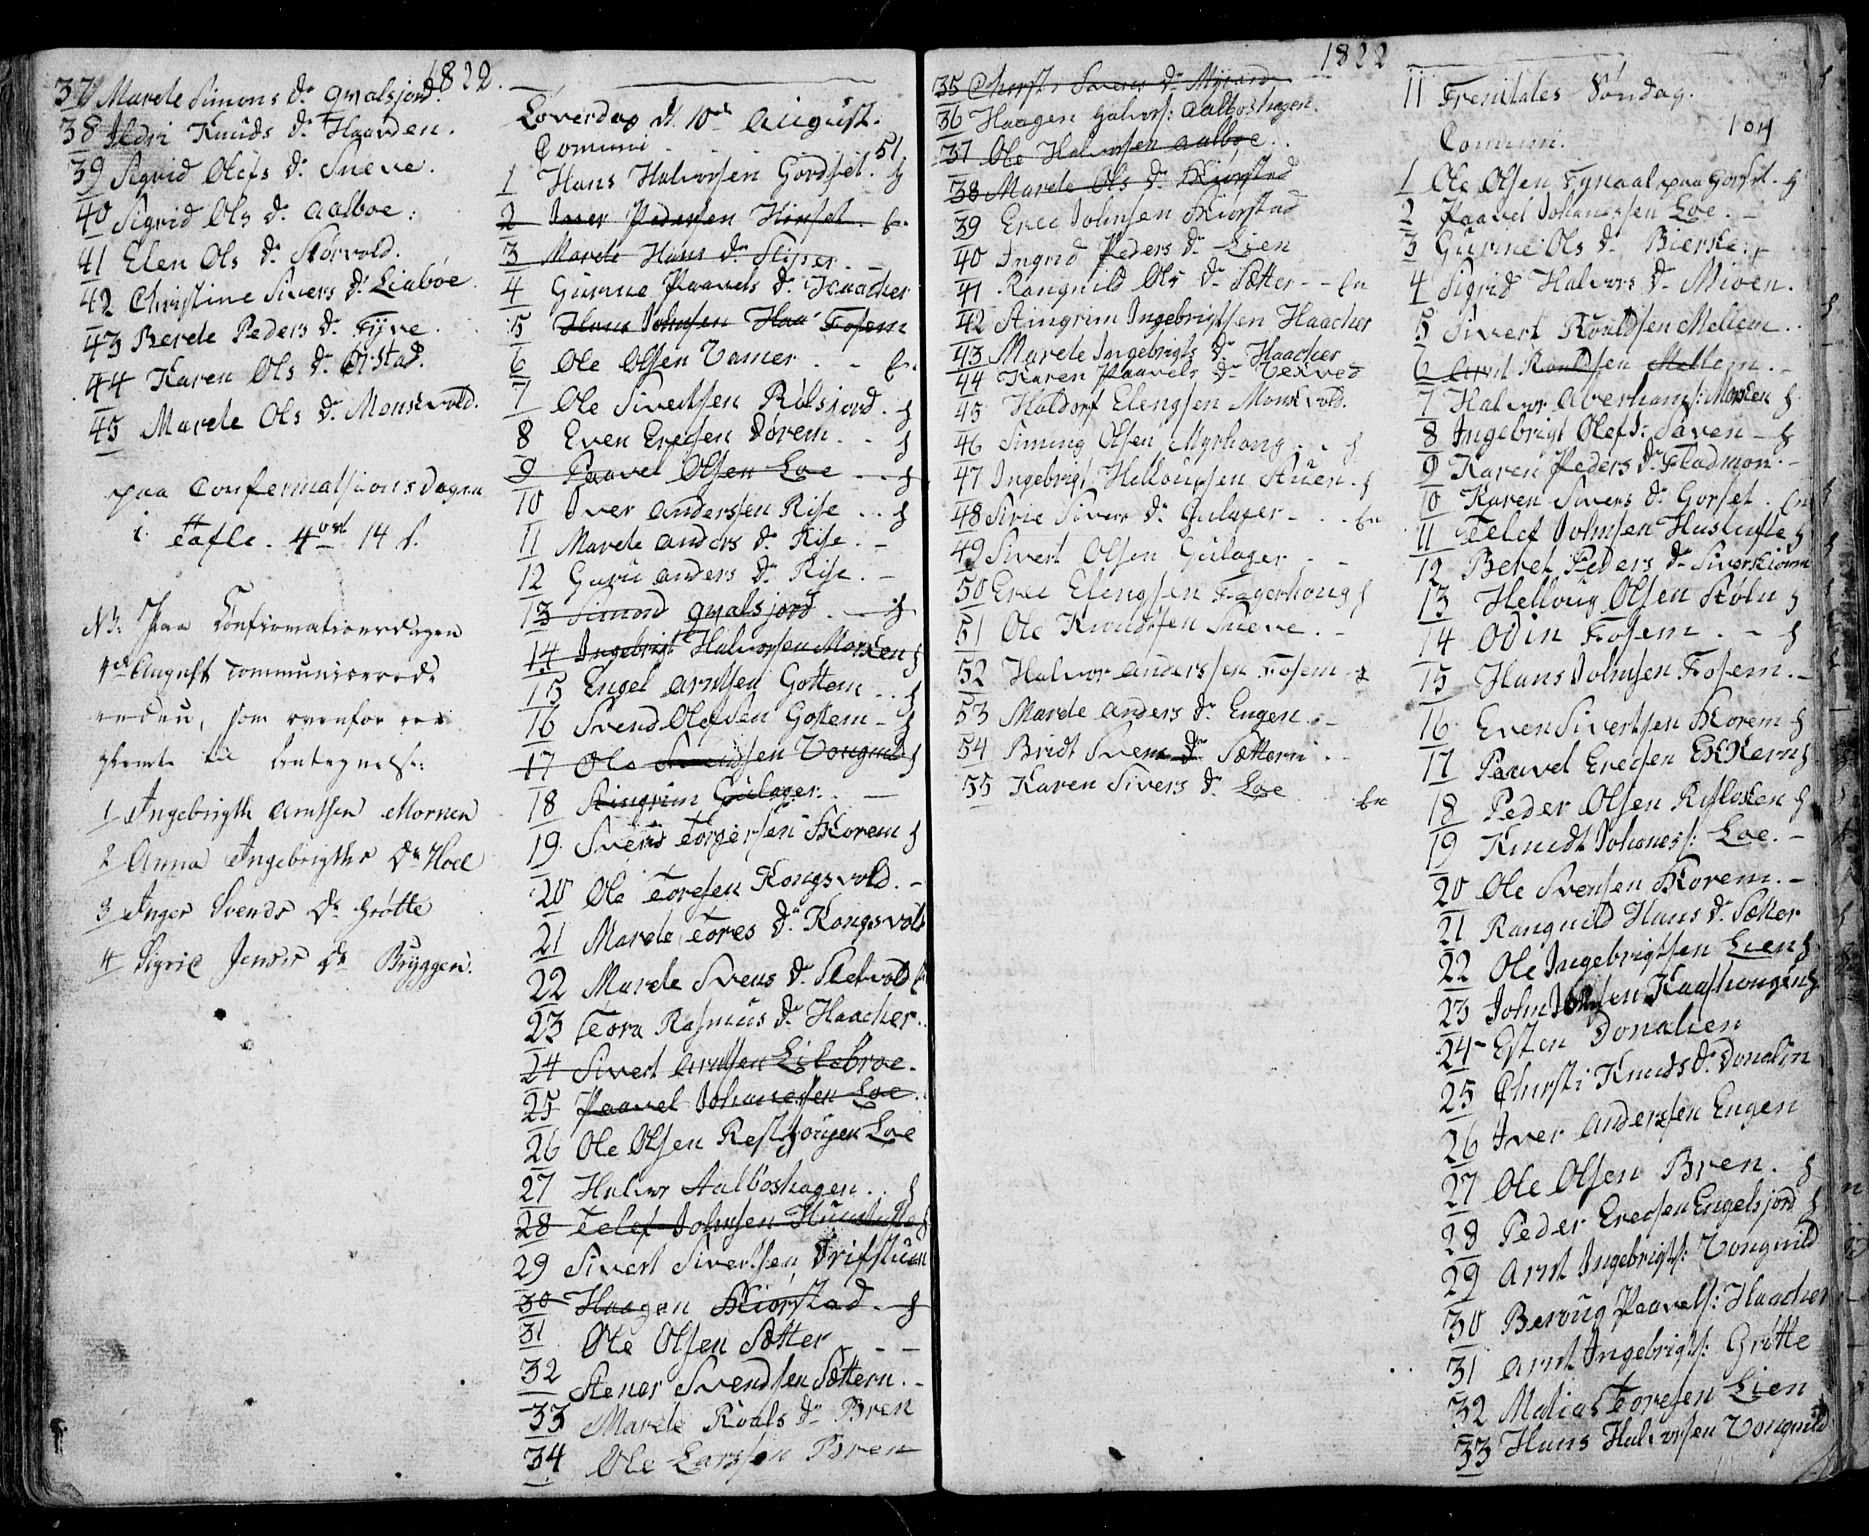 1822.
37 Marele Simons Dr. qvalsjord.
38 Ildri Knuds Dr. Haarden.
39 Sigrid Olefs Dr. Sneve.
40 Sigrid Ols Dr. Aalboe.
41 Elen Ols Dr. Storvold.
42 Christine Sivers Dr. Liaboe.
43 Berele Peders Dr. Tyve.
44 Karen Ols Dr. Ørstad.
45 Marele Ols Dr. Monsevold.
paa Confermatsions Dagen
i Tafle. 4 ort 14 s.
NB. Paa Confirmationsdagen
4de August communicerede
enden, som ovenfor er
glemte til Antegnelse:
1 Ingebrigth Arntsen Mornen
2 Anna Ingebrigths Dr. Hoel
3 Inger Svends Dr. Grøtte
4 Sigrid Jenses Dr. Bryggen.
Løverdag d. 10de August.
Comuni . . . 51
1 Hans Halvorsen Gordset. h
2 Iver Pedersen Hinset.
3 Marele Hans Dr. Sliper.
4 Gurine Paavels Dr. Haacher
5 Hans Johnsen Haa Fosem
6 Ole Olsen Vamer. -
7 Ole Sivertsen Rølsjord. h
8 Even Erecsen Dørem. . h
9 Paavel Olsen Loe . . h
10 Iver Anderssen Rise . . h
11 Marele Anders Dr. Rise. -
12 Guru Anders Dr. Rise. -
13 Simond qvalsjord. h
14 Ingebrigt Halvorsen Morken h
15 Engel Arntsen Gottem. . h
16 Svend Olefsen Gottem - h
17 Ole Svendsen Vongnild h
18 Stingrim Gulager. -
19 Svend Torgersen Skorem h
20 Ole Toresen Kongsvold. -
21 Marele Tores Dr. Kongsvold
22 Marele Svens Dr. Sletvold
23 Tora Rasmus Dr. Haacher.
24 Sivert Arntsen Lilebroe.
25 Paavel Johanessen Loe.
26 Ole Olsen Loe
27 Halvor Aalboshagen. . h
28 Telef Johnsen
29 Sivert Sivertsen Drifstuen
30 Haagen Skiorstad. h
31 Ole Olsen Sætter - -
32 Stener Svendsen Sættern. -
33 Marele Roals Dr. Bren
34 Ole Larssen Bren
1822
35 Chirsti Sivers Dr.
36 Haagen Halvors: Aalboshagen.
37 Ole Halvorsen Aalboe.
38 Marele Ols Dr. Skiorstad
39 Erec Johnsen Skiorstad
40 Ingrid Peders Dr. Lien
41 Rangnild Ols Dr. Sætter - -
42 Stingrim Ingebrigtsen Haacher
43 Marele Ingebrigts Dr. Haacher
44 Karen Paavels Dr. Vexved
45 Haldorf Elengsen Monsevold.
46 Siming Olsen Myrhong . . h
47 Ingebrigt Hellougsen Stuen. h
48 Sirie Sivers Dr. Gulager - . .
49 Sivert Olsen Gulager - -
50 Erec Elengsen Fagerhoug h
51 Ole Knudsen Sneve. -
52 Halvor Anderssen Fosem -
53 Marele Anders Dr. Engen. -
54 Bridt Svens Dr. Sættern. -
55 Karen Sivers Dr. Loe
11 Trenitates Søndag.
104
Comuni.
1 Ole Olsen paa Gorset. h
2 Paavel Johanessen Loe. -
3 Gurine Ols Dr. Bierke.
4 Sigrid Halvors Dr. Mioen.
5 Sivert Rouldsen Mellem. .
6 Arnt Rouldsen Mellem. -
7 Halvor Aberhams: Morken h
8 Ingebrigt Olefs: Saven - h
9 Karen Peders Dr. Fladmon. -
10 Karen Sivers Dr. Gorset.
11 Telef Johnsen h
12 Beret Peders Dr.
13 Helloug Olsen Støln h
14 Odin Fosem. - h
15 Hans Johnsen Fosem. -
16 Even Sivertsen Skorem h
17 Paavel Erecsen
18 Peder Olsen h
19 Knudt Johanes: Loe. -
20 Ole Svensen Skorem. -
21 Rangnild Hans Dr. Sætter
22 Ole Ingebrigtsen Lien h
23 John Kaashougen
24 Esten Donalien
25 Chirsti Knuds Dr. Donalin
26 Iver Anderssen Engen
27 Ole Olsen Bren. h
28 Peder Erecsen Engelsjord h
29 Arnt Ingebrigts: Vongnild
30 Beroug Paavels: Haacher
31 Arnt Ingebrigts: Grøtte
32 Matias Toresen Lien
33 Hans Halvorsen Vongnild